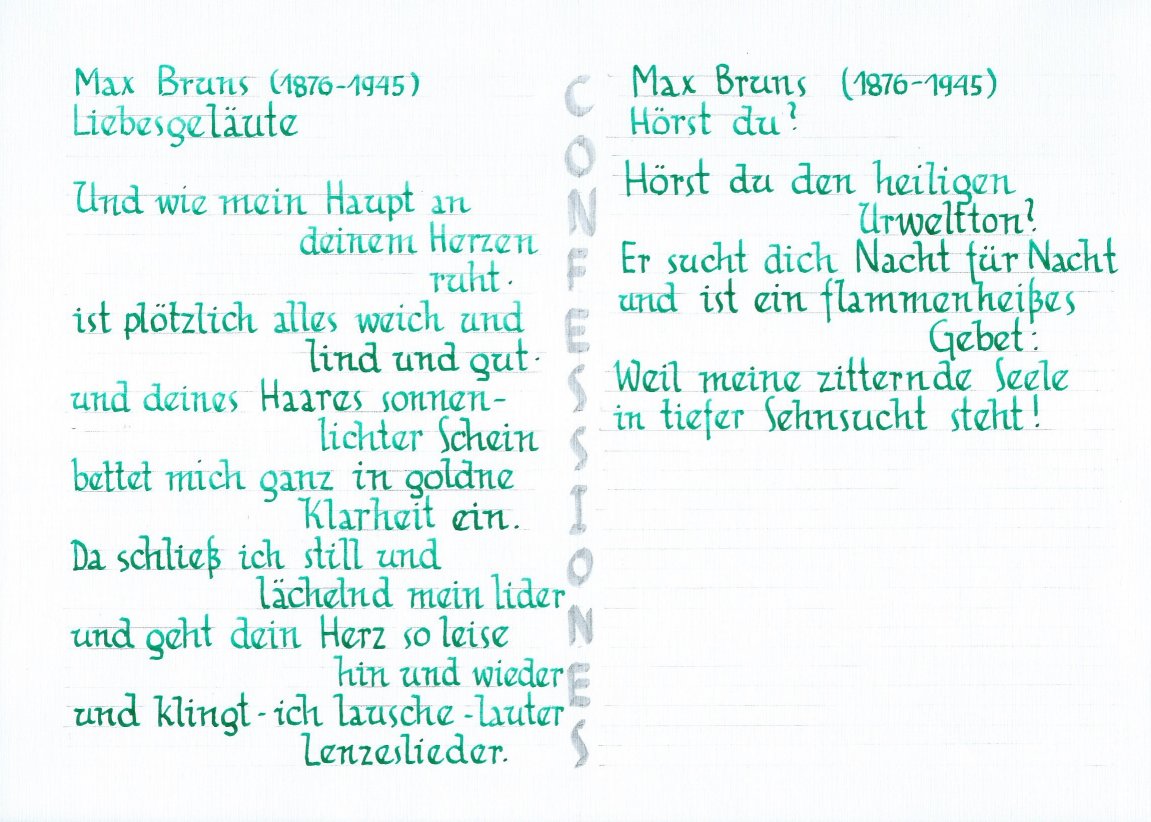 Max Bruns (1876-1945)
Liebesgeläute
Und wie mein Haupt an
deinem Herzen
ruht.
ist plötzlich alles weich und
lind und gut.
und deines Haares sonnen-
lichter Schein
bettet mich ganz in goldne
Klarheit ein.
Da schließ ich still und
lächelnd mein lider
und geht dein Herz so leise
hin und wieder
und klingt - ich lausche - lauter
Lenzeslieder.
CONFESSIONES
Max Bruns (1876-1945)
Hörst du?
Hörst du den heiligen
Urweltton?
Er sucht dich Nacht für Nacht
und ist ein flammenheißes
Gebet:
Weil meine zitternde Seele
in tiefer Sehnsucht steht!